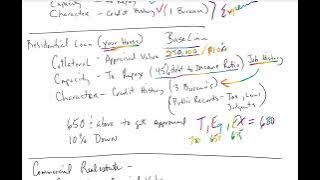 Capacity - To Repay
Character - Credit History (1 Bureau)
Residential Loan (your House) BaseLine
Collateral - Appraisal Value
Capacity - To Repay (45% Debt to Income Ratio) Job History
Character - Credit History (3 Bureau's)
(Public Records - Tax, Lein,
Judgments
650 & above to get Approved T, Eq, EX = 680
10% Down
Commercial Realestate -